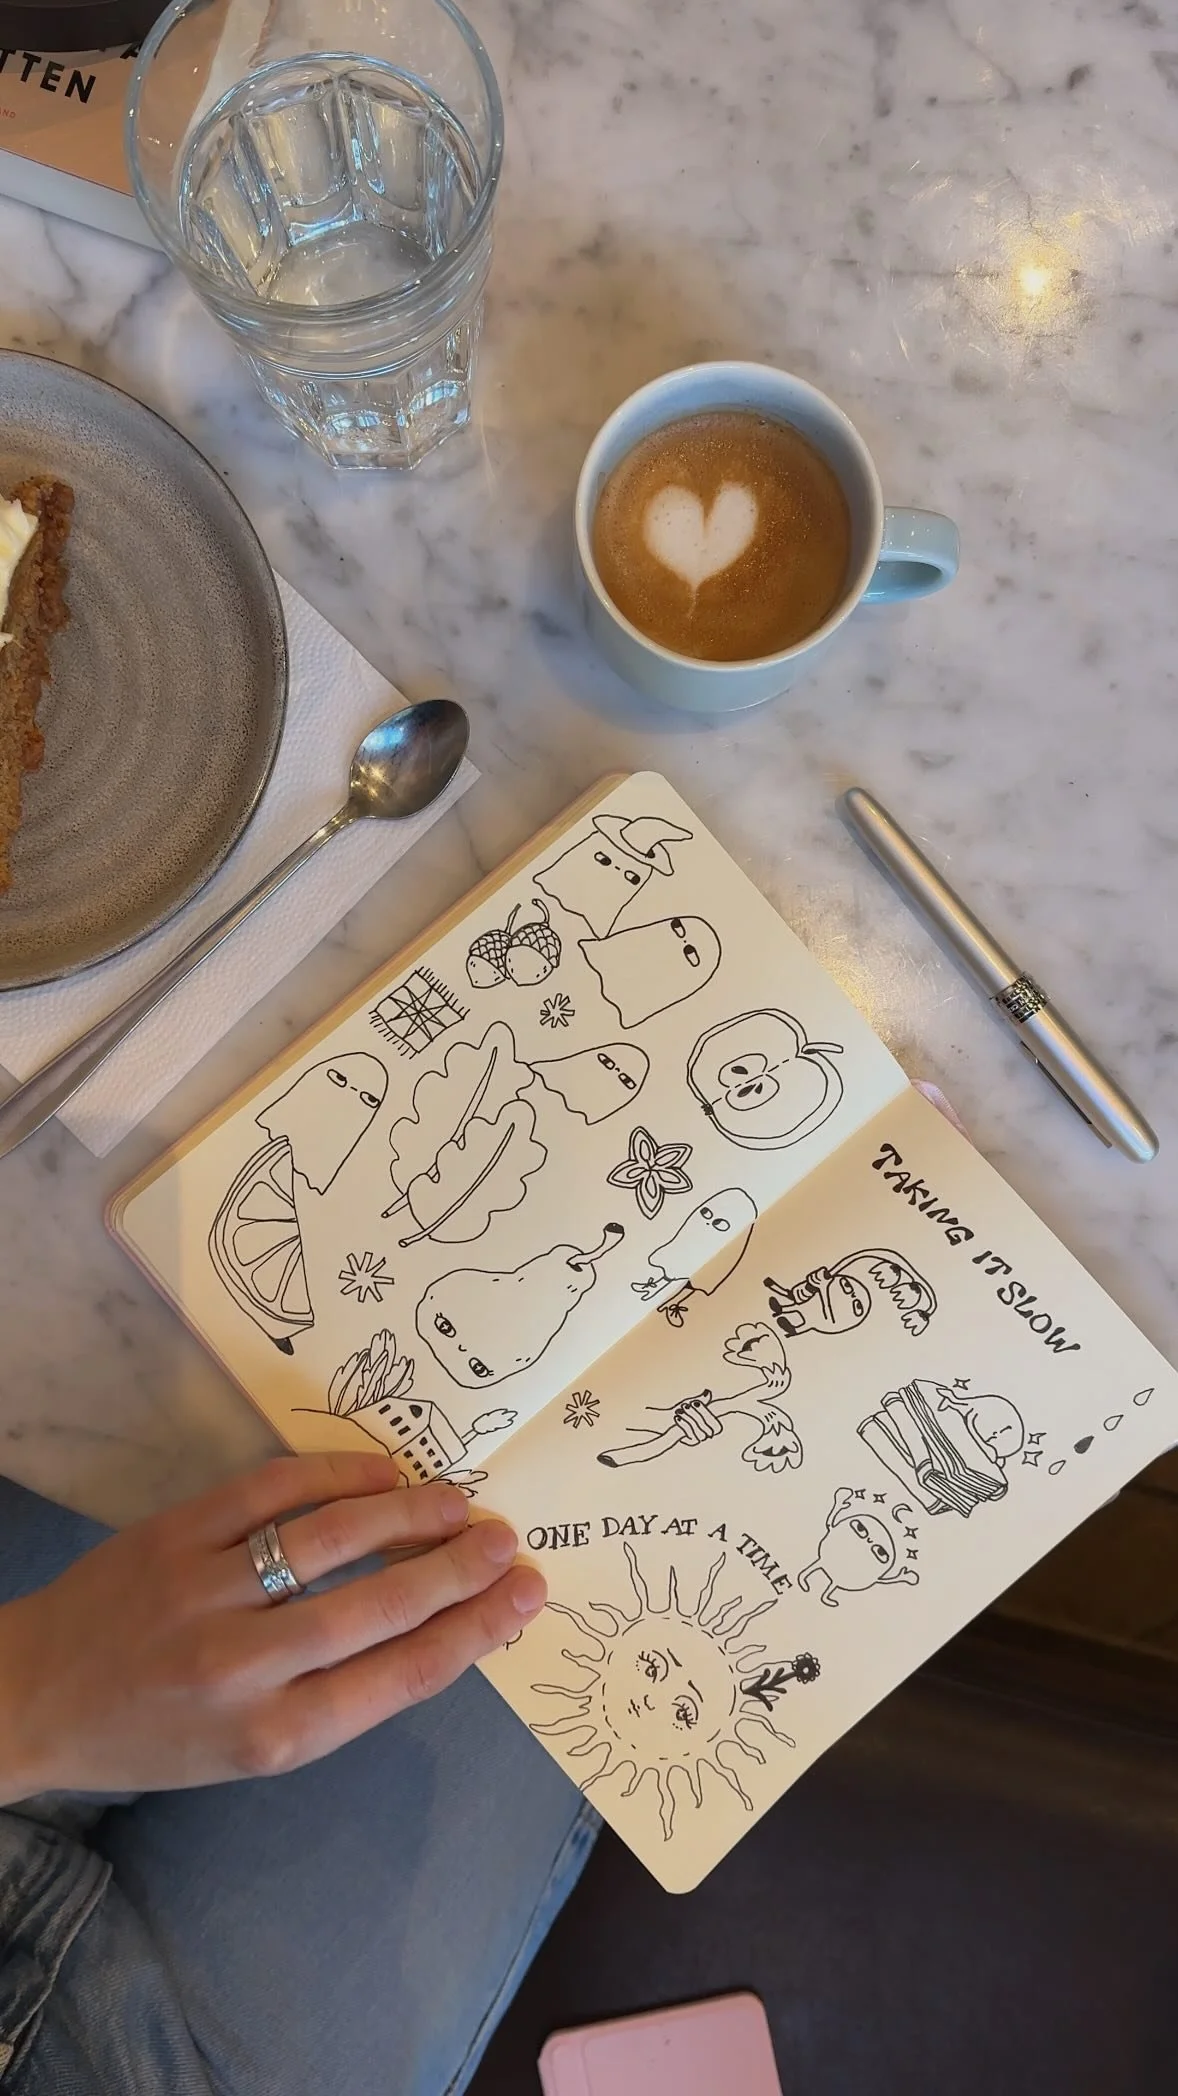 TTEN
TAKING IT SLOW
ONE DAY AT A TIME